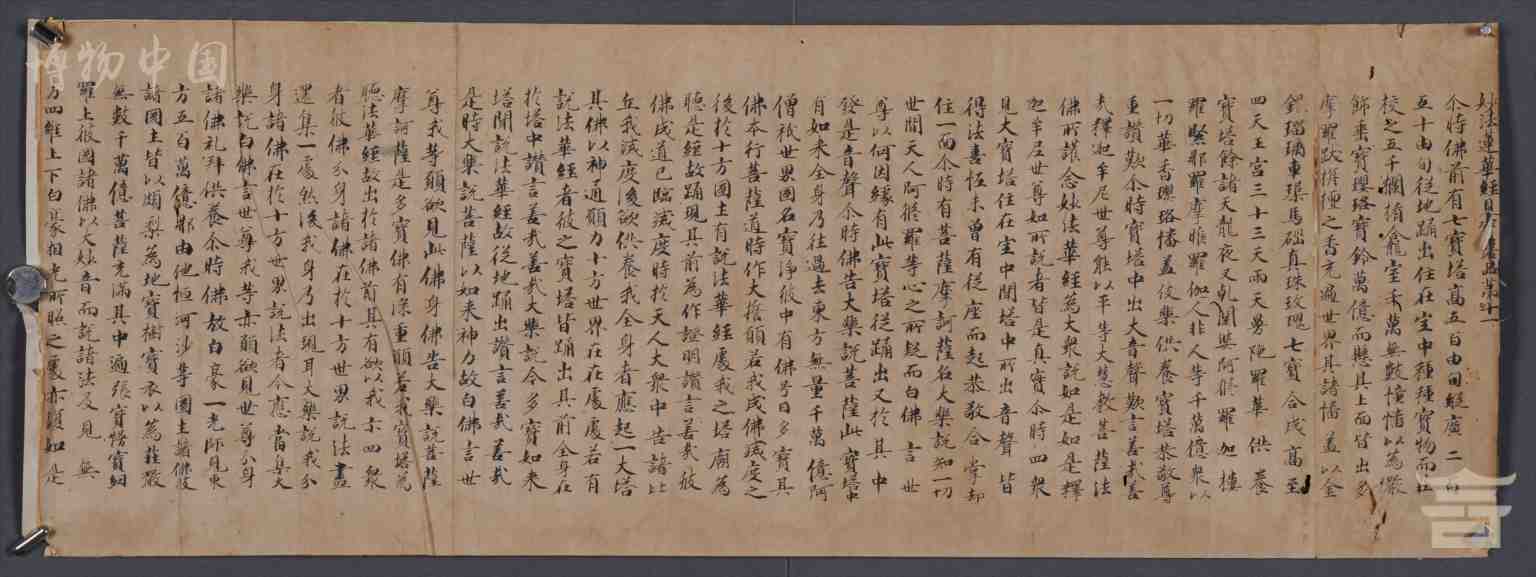 妙法蓮華經見寶塔品第十一
尒時佛前有七寶塔高五百由旬縱廣二百
五十由旬從地踊出住在空中種種寶物而莊
校之五千欄楯龕室千萬無數幢幡以為嚴
飾垂寶瓔珞寶鈴萬億而懸其上四面皆出多
摩羅跋栴檀之香充遍世界其諸幡蓋以金
銀瑠璃車𤦲馬碯真珠玫瑰七寶合成高至
四天王宮三十三天雨天曼陁羅華供養
寶塔餘諸天龍夜叉乾闥婆阿脩羅迦樓
羅緊那羅摩睺羅伽人非人等千萬億衆以
一切華香瓔珞幡蓋伎樂供養寶塔恭敬尊
重讚歎尒時寶塔中出大音聲歎言善哉善
哉釋迦牟尼世尊能以平等大慧教菩薩法
佛所護念妙法華經為大衆說如是如是釋
迦牟尼世尊如所說者皆是真實尒時四衆
見大寶塔住在空中聞塔中所出音聲皆
得法喜恠未曾有從座而起恭敬合掌却
住一面尒時有菩薩摩訶薩名大樂說知一切
世間天人阿脩羅等心之所疑而白佛言世
尊以何因緣有此寶塔從地踊出又於其中
發是音聲尒時佛告大樂說菩薩此寶塔中
有如來全身乃往過去東方無量千萬億阿
僧祇世界國名寶淨彼中有佛号曰多寶其
佛本行菩薩道時作大擔願若我成佛滅度之
後於十方國土有說法華經處我之塔廟為
聽是經故踊現其前為作證明讚言善哉彼
佛成道已臨滅度時於天人大衆中告諸比
丘我滅度後欲供養我全身者應起一大塔
其佛以神通願力十方世界在在處處若有
說法華經者彼之寶塔皆踊出其前全身在
於塔中讚言善哉善哉大樂說今多寶如來
塔聞說法華經故從地踊出讚言善哉善哉
是時大樂說菩薩以如來神力故白佛言世
尊我等願欲見此佛身佛告大樂說菩薩
摩訶薩是多寶佛有深重願若我寶塔為
聽法華經故出於諸佛前其有欲以我身示四衆
者彼佛分身諸佛在於十方世界說法盡
還集一處然後我身乃出現耳大樂說我分
身諸佛在於十方世界說法者今應當集大
樂說白佛言世尊我等亦願欲見世尊分身
諸佛礼拜供養尒時佛放白豪一光即見東
方五百萬億那由他恒河沙等國土諸佛彼
諸國土皆以頗梨為地寶樹寶衣以為莊嚴
無數千萬億菩薩充滿其中遍張寶幔寶網
羅上彼國諸佛以大妙音而說諸法及見無
方四維上下白豪相光所照之處亦復如是
博物中国